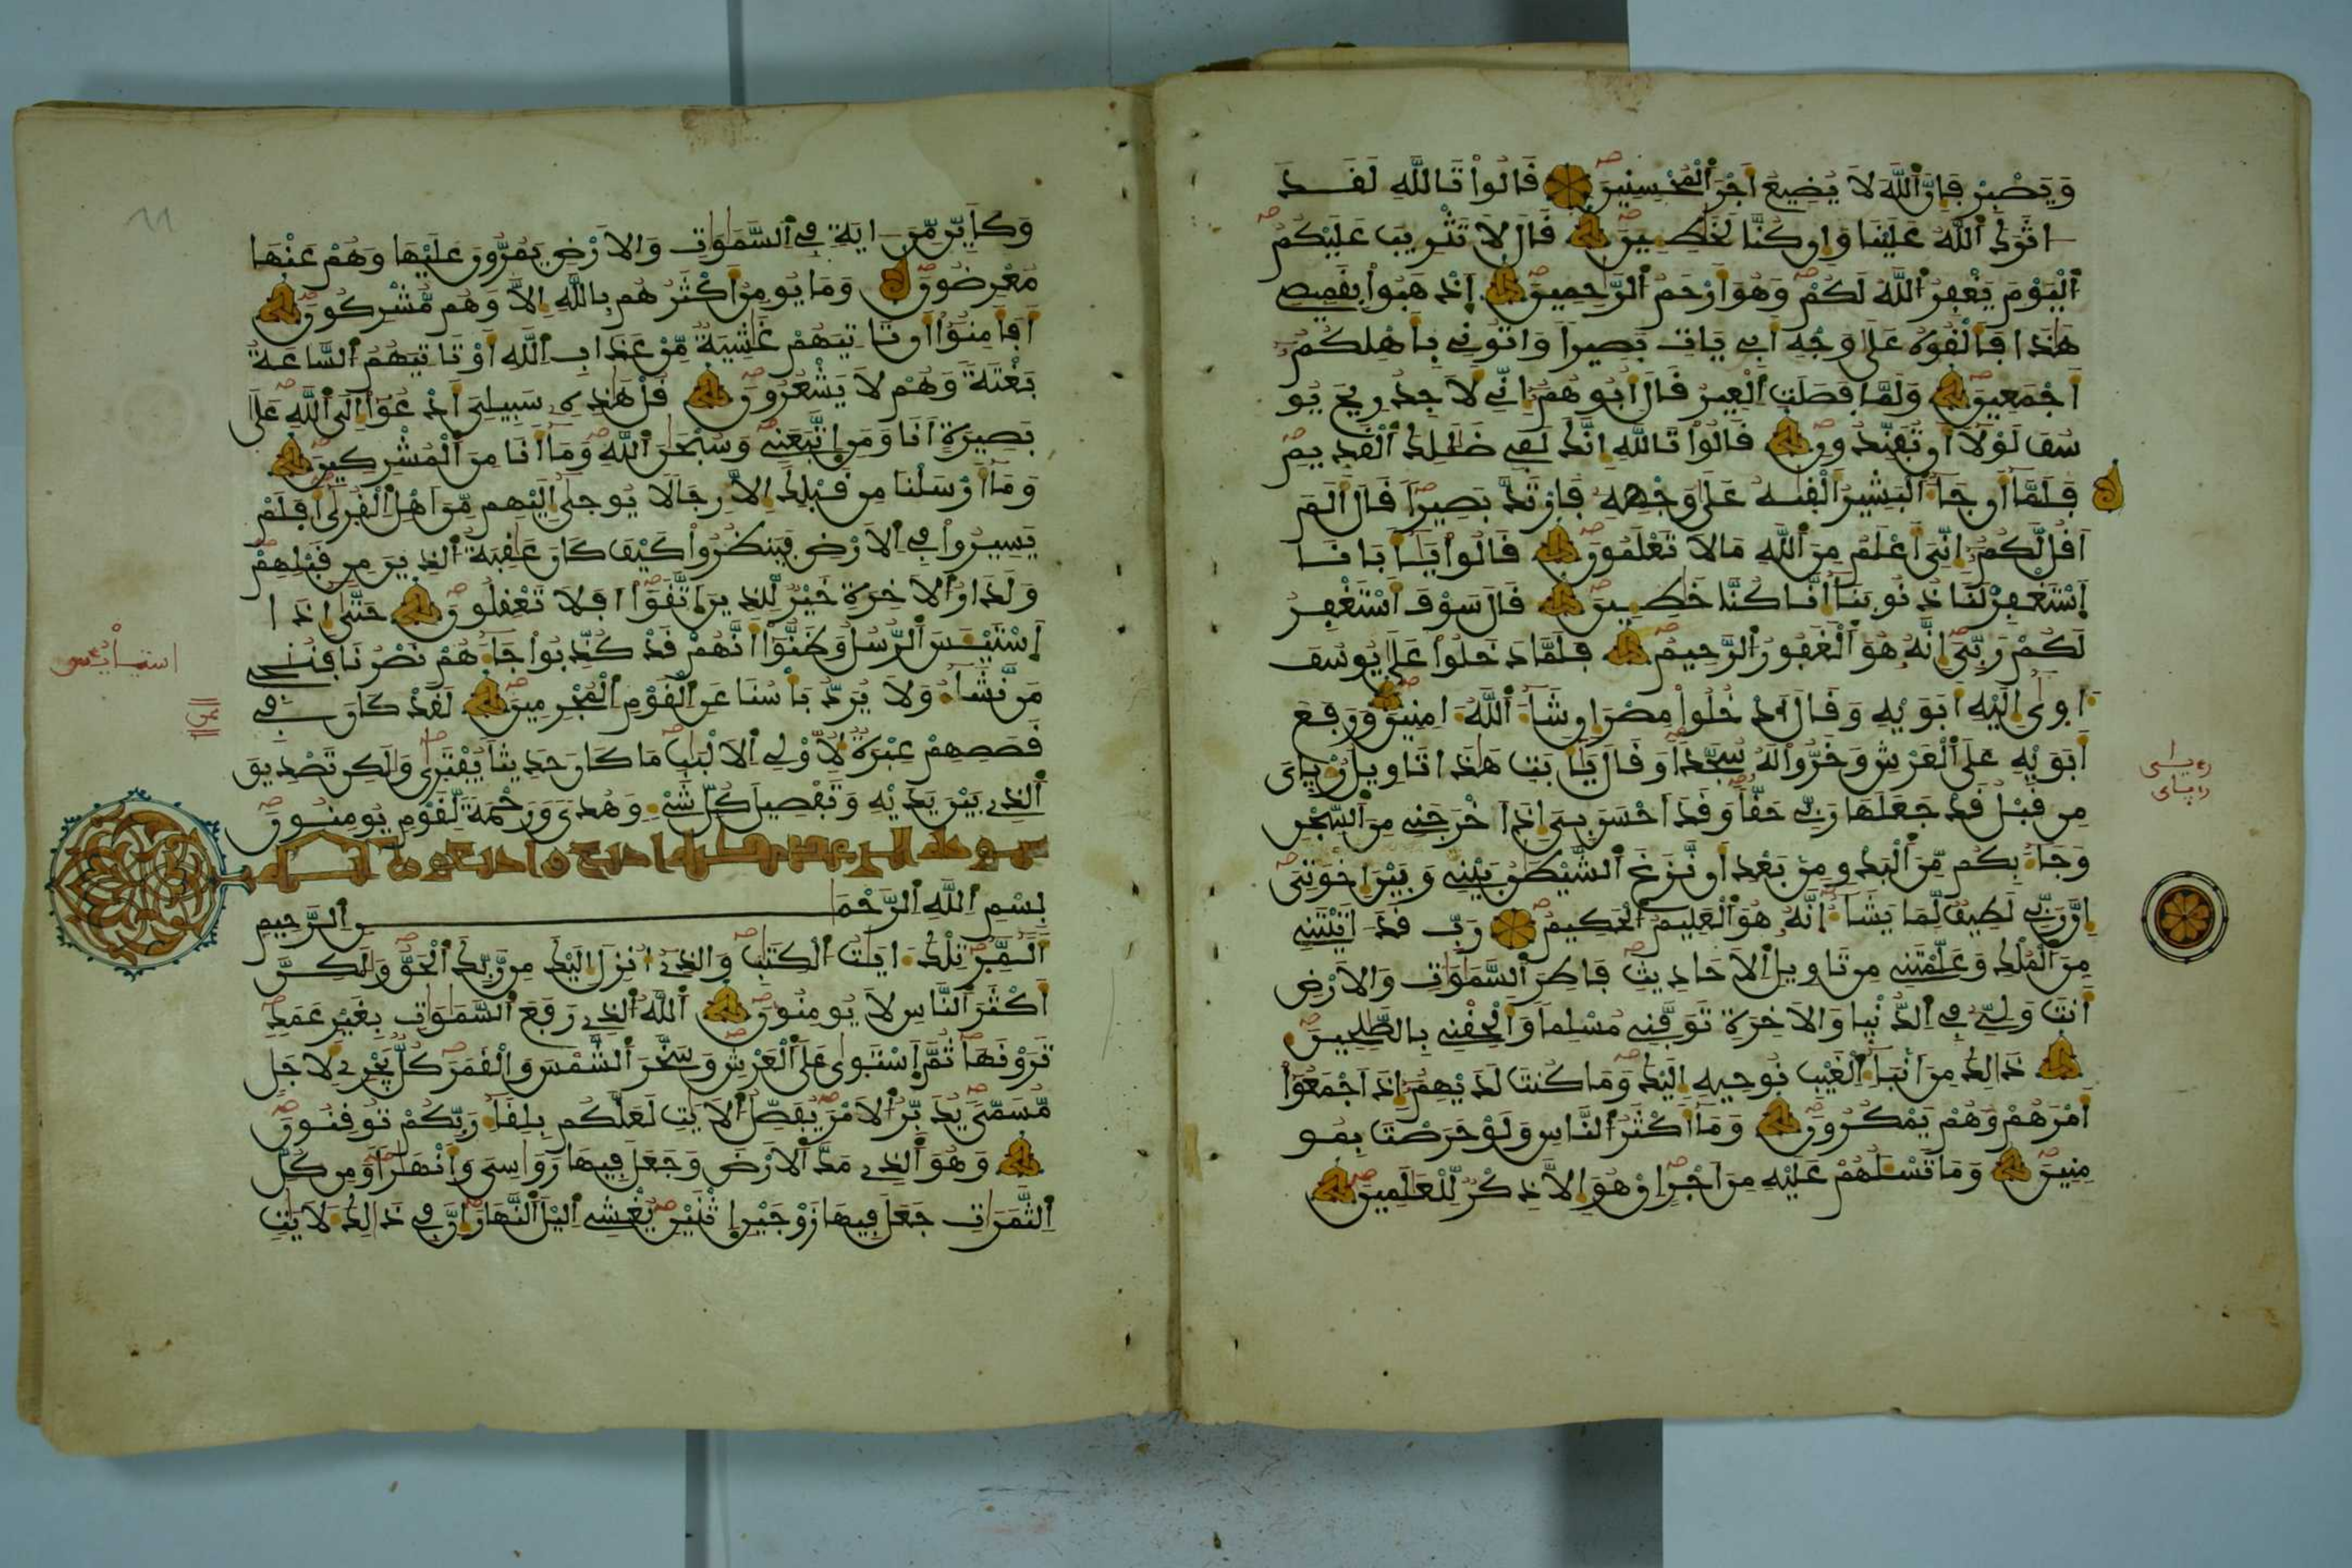 وَيَصْبِرْ فَإِنَّ اَللَّهَ لَا يُضِيعُ أَجْرَ اَلْمُحْسِنِينَ قَالُواْ تَاللَّهِ لَقَد
اثَرَكَ اَللَّهُ عَلَيْنَا وَإِن كُنَّا لَخَٰطِـِٕينَ قَالَ لَا تَثْرِيبَ عَلَيْكُمُ
اُلْيَوْمَ يَغْفِرُ اُللَّهُ لَكُمْ وَهُوَ أَرْحَمُ اُلرَّٰحِمِينَ اَذْهَبُواْ بِقَمِيصِے
هَٰذَا فَأَلْقُوهُ عَلَىٰ وَجْهِ أَبِے يَاتِ بَصِيراً وَاتُونِے بِأَهْلِكُمُ
أَجْمَعِينَ وَلَمَّا فَصَلَتِ اِلْعِيرُ قَالَ أَبُوهُمُ إِنِّے لَأَجِدُ رِيحَ يُو
سُفَ لَوْلَا أَن تُفَنِّدُونِ قَالُواْ تَاللَّهِ إِنَّكَ لَفِے ضَلَٰلِكَ اَلْقَدِيمِ
فَلَمَّا أَن جَاءَ اَلْبَشِيرُ أَلْقَىٰهُ عَلَىٰ وَجْهِهِ فَارْتَدَّ بَصِيراً قَالَ أَلَم
أَقُل لَّكُمُ إِنِّيَ أَعْلَمُ مِنَ اَللَّهِ مَا لَا تَعْلَمُونَ قَالُواْ يَٰأَبَانَا
اَسْتَغْفِرْ لَنَا ذُنُوبَنَا إِنَّا كُنَّا خَٰطِـِٕينَ قَالَ سَوْفَ أَسْتَغْفِرُ
لَكُمْ رَبِّيَ إِنَّهُ هُوَ اَلْغَفُورُ اُلرَّحِيمُ فَلَمَّا دَخَلُواْ عَلَىٰ يُوسُفَ
ءَاوَىٰ إِلَيْهِ أَبَوَيْهِ وَقَالَ اَدْخُلُواْ مِصْرَ إِن شَاءَ اَللَّهُ ءَامِنِينَ وَرَفَعَ
أَبَوَيْهِ عَلَى اَلْعَرْشِ وَخَرُّواْ لَهُ سُجَّداً وَقَالَ يَٰأَبَتِ هَٰذَا تَاوِيلُ رُءْيَٰيَ
مِن قَبْلُ قَدْ جَعَلَهَا رَبِّے حَقّاً وَقَدَ اَحْسَنَ بِيَ إِذَ اَخْرَجَنِے مِنَ اَلسِّجْنِ
وَجَاءَ بِكُم مِّنَ اَلْبَدْوِ مِنۢ بَعْدِ أَن نَّزَغَ اَلشَّيْطَٰنُ بَيْنِے وَبَيْنَ إِخْوَتِيَ
إِنَّ رَبِّے لَطِيفٌ لِّمَا يَشَاءُ إِنَّهُ هُوَ اَلْعَلِيمُ اُلْحَكِيمُ رَبِّ قَدَ اتَيْتَنِے
مِنَ اَلْمُلْكِ وَعَلَّمْتَنِے مِن تَاوِيلِ اِلْأَحَادِيثِ فَاطِرَ اَلسَّمَٰوَٰتِ وَالْأَرْضِ
أَنتَ وَلِيِّے فِے اِلدُّنْيَا وَالْأَخِرَةِ تَوَفَّنِے مُسْلِماً وَأَلْحِقْنِے بِالصَّٰلِحِينَ
ذَٰلِكَ مِنَ أَنۢبَاءِ اِلْغَيْبِ نُوحِيهِ إِلَيْكَ وَمَا كُنتَ لَدَيْهِمُ إِذَ اَجْمَعُواْ
أَمْرَهُمْ وَهُمْ يَمْكُرُونَ وَمَا أَكْثَرُ اُلنَّاسِ وَلَوْ حَرَصْتَ بِمُو
مِنِينَ وَمَا تَسْـَٔلُهُمْ عَلَيْهِ مِنَ اَجْرٍ اِنْ هُوَ إِلَّا ذِكْرٌ لِّلْعَٰلَمِينَ
وَكَأَيِّن مِّنَ ايَةٍ فِے اِلسَّمَٰوَٰتِ وَالْأَرْضِ يَمُرُّونَ عَلَيْهَا وَهُمْ عَنْهَا
مُعْرِضُونَ وَمَا يُومِنُ أَكْثَرُهُم بِاللَّهِ إِلَّا وَهُم مُّشْرِكُونَ
أَفَأَمِنُواْ أَن تَاتِيَهُمْ غَٰشِيَةٌ مِّنْ عَذَابِ اِللَّهِ أَوْ تَاتِيَهُمُ اُلسَّاعَةُ
بَغْتَةً وَهُمْ لَا يَشْعُرُونَ قُلْ هَٰذِهِ سَبِيلِيَ أَدْعُواْ إِلَى اَللَّهِ عَلَىٰ
بَصِيرَةٍ اَنَا وَمَنِ اِتَّبَعَنِے وَسُبْحَٰنَ اَللَّهِ وَمَا أَنَا مِنَ اَلْمُشْرِكِينَ
وَمَا أَرْسَلْنَا مِن قَبْلِكَ إِلَّا رِجَالاً يُوحَىٰ إِلَيْهِم مِّنَ أَهْلِ اِلْقُرَىٰ أَفَلَمْ
يَسِيرُواْ فِے اِلْأَرْضِ فَيَنظُرُواْ كَيْفَ كَانَ عَٰقِبَةُ اُلذِينَ مِن قَبْلِهِمْ
وَلَدَارُ اُلْأَخِرَةِ خَيْرٌ لِّلذِينَ اَتَّقَوَاْ اَفَلَا تَعْقِلُونَ حَتَّىٰ إِذَا
اَسْتَيْـَٔسَ اَلرُّسُلُ وَظَنُّواْ أَنَّهُمْ قَدْ كُذِّبُواْ جَاءَهُمْ نَصْرُنَا فَنُنجِے
مَن نَّشَاءُ وَلَا يُرَدُّ بَأْسُنَا عَنِ اِلْقَوْمِ اِلْمُجْرِمِينَ لَقَدْ كَانَ فِے
قَصَصِهِمْ عِبْرَةٌ لِّأُوْلِے اِلْأَلْبَٰبِ مَا كَانَ حَدِيثاً يُفْتَرَىٰ وَلَٰكِن تَصْدِيقَ
اَلذِے بَيْنَ يَدَيْهِ وَتَفْصِيلَ كُلِّ شَےْءٍ وَهُدىً وَرَحْمَةً لِّقَوْمٍ يُومِنُونَ
بِسْمِ اِللَّهِ اِلرَّحْمَٰنِ اِلرَّحِيمِ
أَلَٓمِّٓرَ تِلْكَ ءَايَٰتُ اُلْكِتَٰبِ وَالذِے أُنزِلَ إِلَيْكَ مِن رَّبِّكَ اَلْحَقُّ وَلَٰكِنَّ
أَكْثَرَ اَلنَّاسِ لَا يُومِنُونَ اَللَّهُ اُلذِے رَفَعَ اَلسَّمَٰوَٰتِ بِغَيْرِ عَمَدٍ
تَرَوْنَهَا ثُمَّ اَسْتَوَىٰ عَلَى اَلْعَرْشِ وَسَخَّرَ اَلشَّمْسَ وَالْقَمَرَ كُلٌّ يَجْرِے لِأَجَلٍ
مُّسَمّىً يُدَبِّرُ اُلْأَمْرَ يُفَصِّلُ اُلْأَيَٰتِ لَعَلَّكُم بِلِقَاءِ رَبِّكُمْ تُوقِنُونَ
وَهُوَ اَلذِے مَدَّ اَلْأَرْضَ وَجَعَلَ فِيهَا رَوَٰسِيَ وَأَنْهَٰراً وَمِن كُلِّ
اِلثَّمَرَٰتِ جَعَلَ فِيهَا زَوْجَيْنِ اِثْنَيْنِ يُغْشِے اِليْلَ اَلنَّهَارَ إِنَّ فِے ذَٰلِكَ لَأَيَٰتٍ